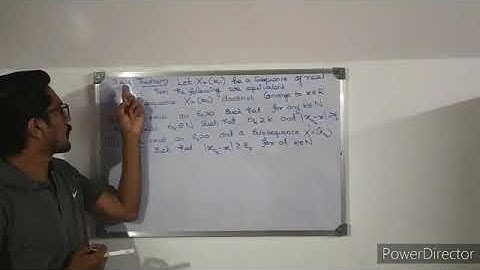 Theorem Let X=(xₙ) be a sequence of real
Then the following are equivalent
X=(xₙ) does not converge to x∈R
an ε₀>0 such that for any k∈N
nₖ∈N such that nₖ≥k and |xₙₖ-x|≥
an ε₀>0 and a subsequence X'=(xₙₖ)
such that |xₙₖ-x|≥ε₀ for all k∈N
PowerDirector